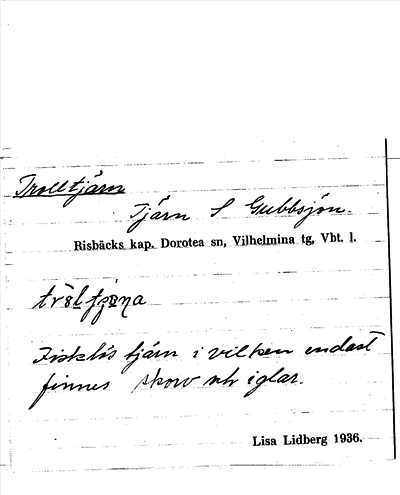 Trolltjärn
Tjärn S Gubbsjön.
Risbäcks kap. Dorotea sn, Vilhelmina tg, Vbt. l.
Fisklös tjärn i vilken endast
finnes skorv och iglar.
Lisa Lidberg 1936.